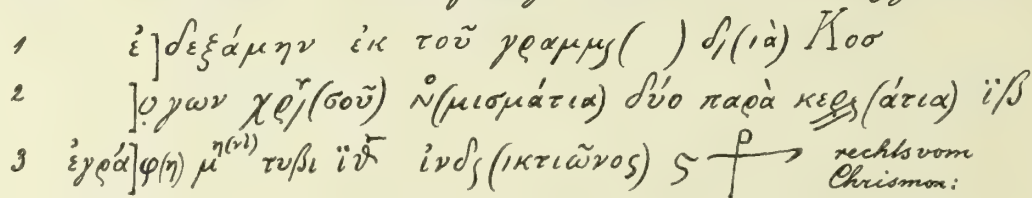 1 ἐ]δεξάμην ἐκ τοῦ γραμμς( ) δι(ιὰ) Κοσ
2 ]ο̣γων χρι(σοῦ) Νο(μισμάτια) δύο παρὰ κερς(άτια) ϊβ
3 ἐγρά]φ(η) μη(νὶ) τυβι ϊθ ἰνδς(ικτιῶνος) ς ⳨ rechts vom
Chrismon: